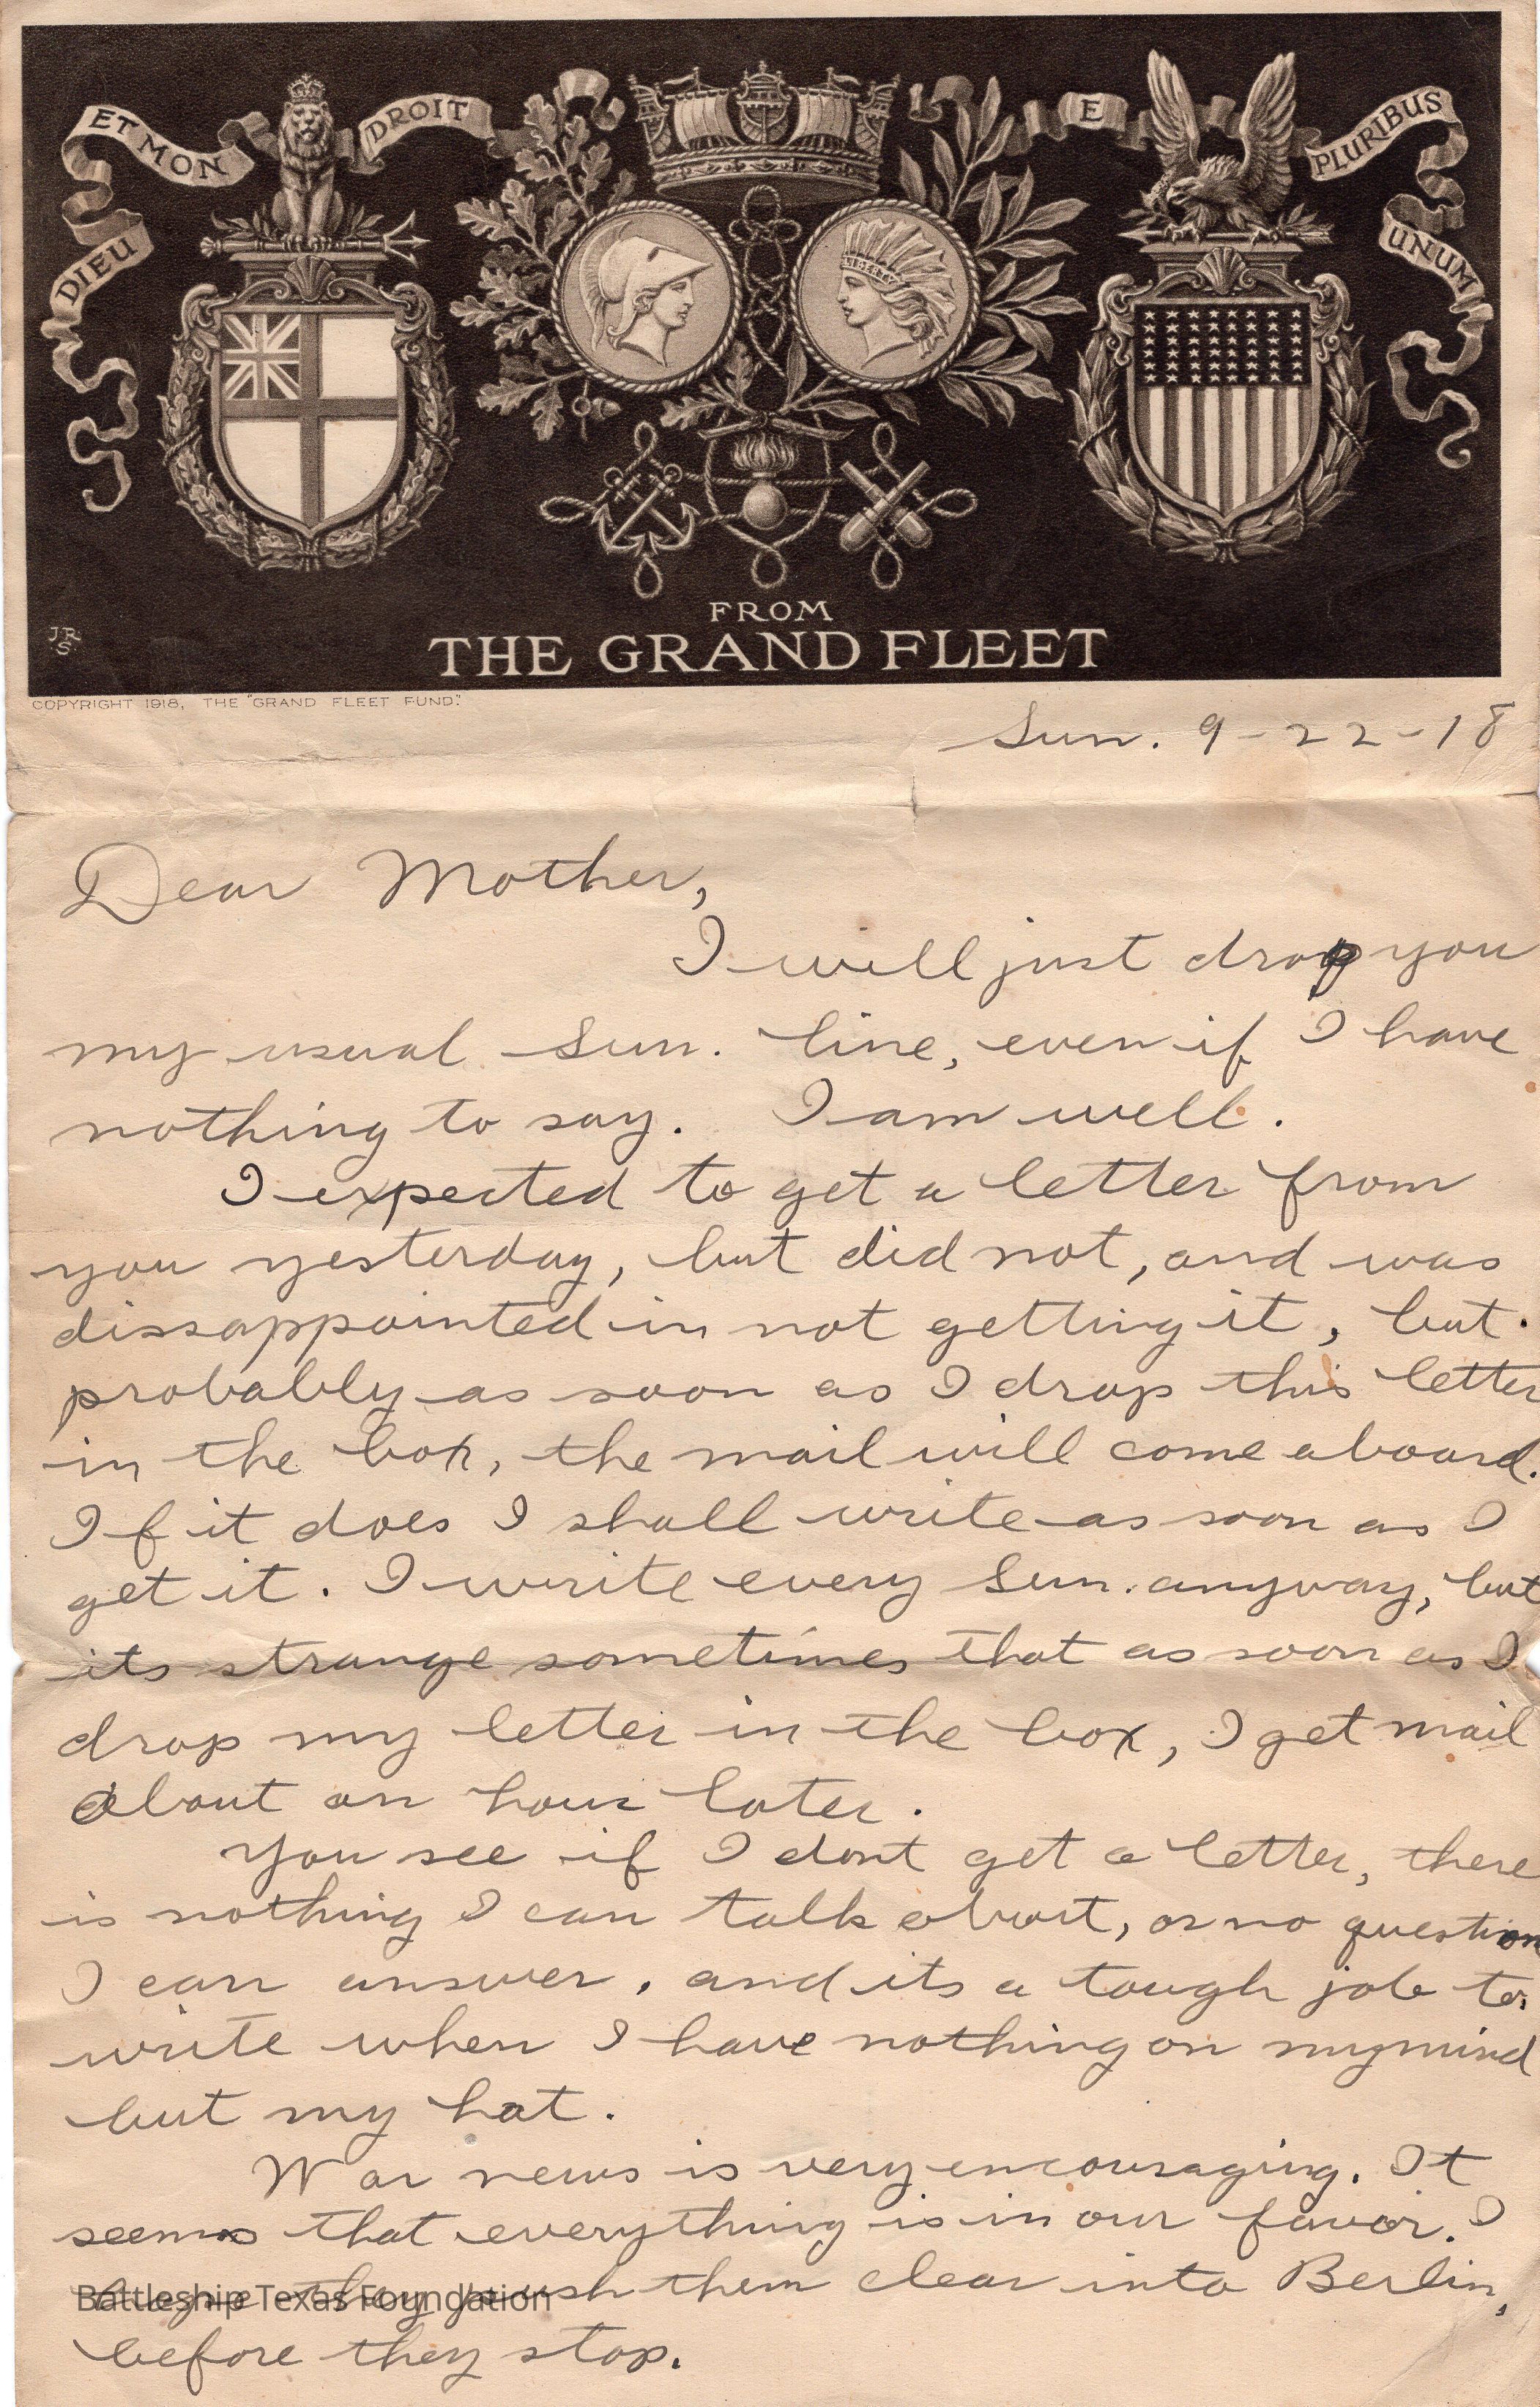 DIEU ET MON DROIT
E PLURIBUS UNUM
LIBERTY
FROM
THE GRAND FLEET
JR
S
COPYRIGHT 1918, THE "GRAND FLEET FUND."
Sun. 9-22-18
Dear Mother,
I will just drop you
my usual Sun. line, even if I have
nothing to say. I am well.
I expected to get a letter from
you yesterday, but did not, and was
dissappointed in not getting it, but
probably as soon as I drop this letter
in the box, the mail will come aboard.
If it does I shall write as soon as I
get it. I write every Sun. anyway, but
its strange sometimes that as soon as I
drop my letter in the box, I get mail
about an hour later.
You see if I dont get a letter, there
is nothing I can talk about, or no question
I can answer, and its a tough job to
write when I have nothing on my mind
but my hat.
War news is very encouraging. It
seems that everything is in our favor. I
hope they push them clear into Berlin,
before they stop.
Battleship Texas Foundation